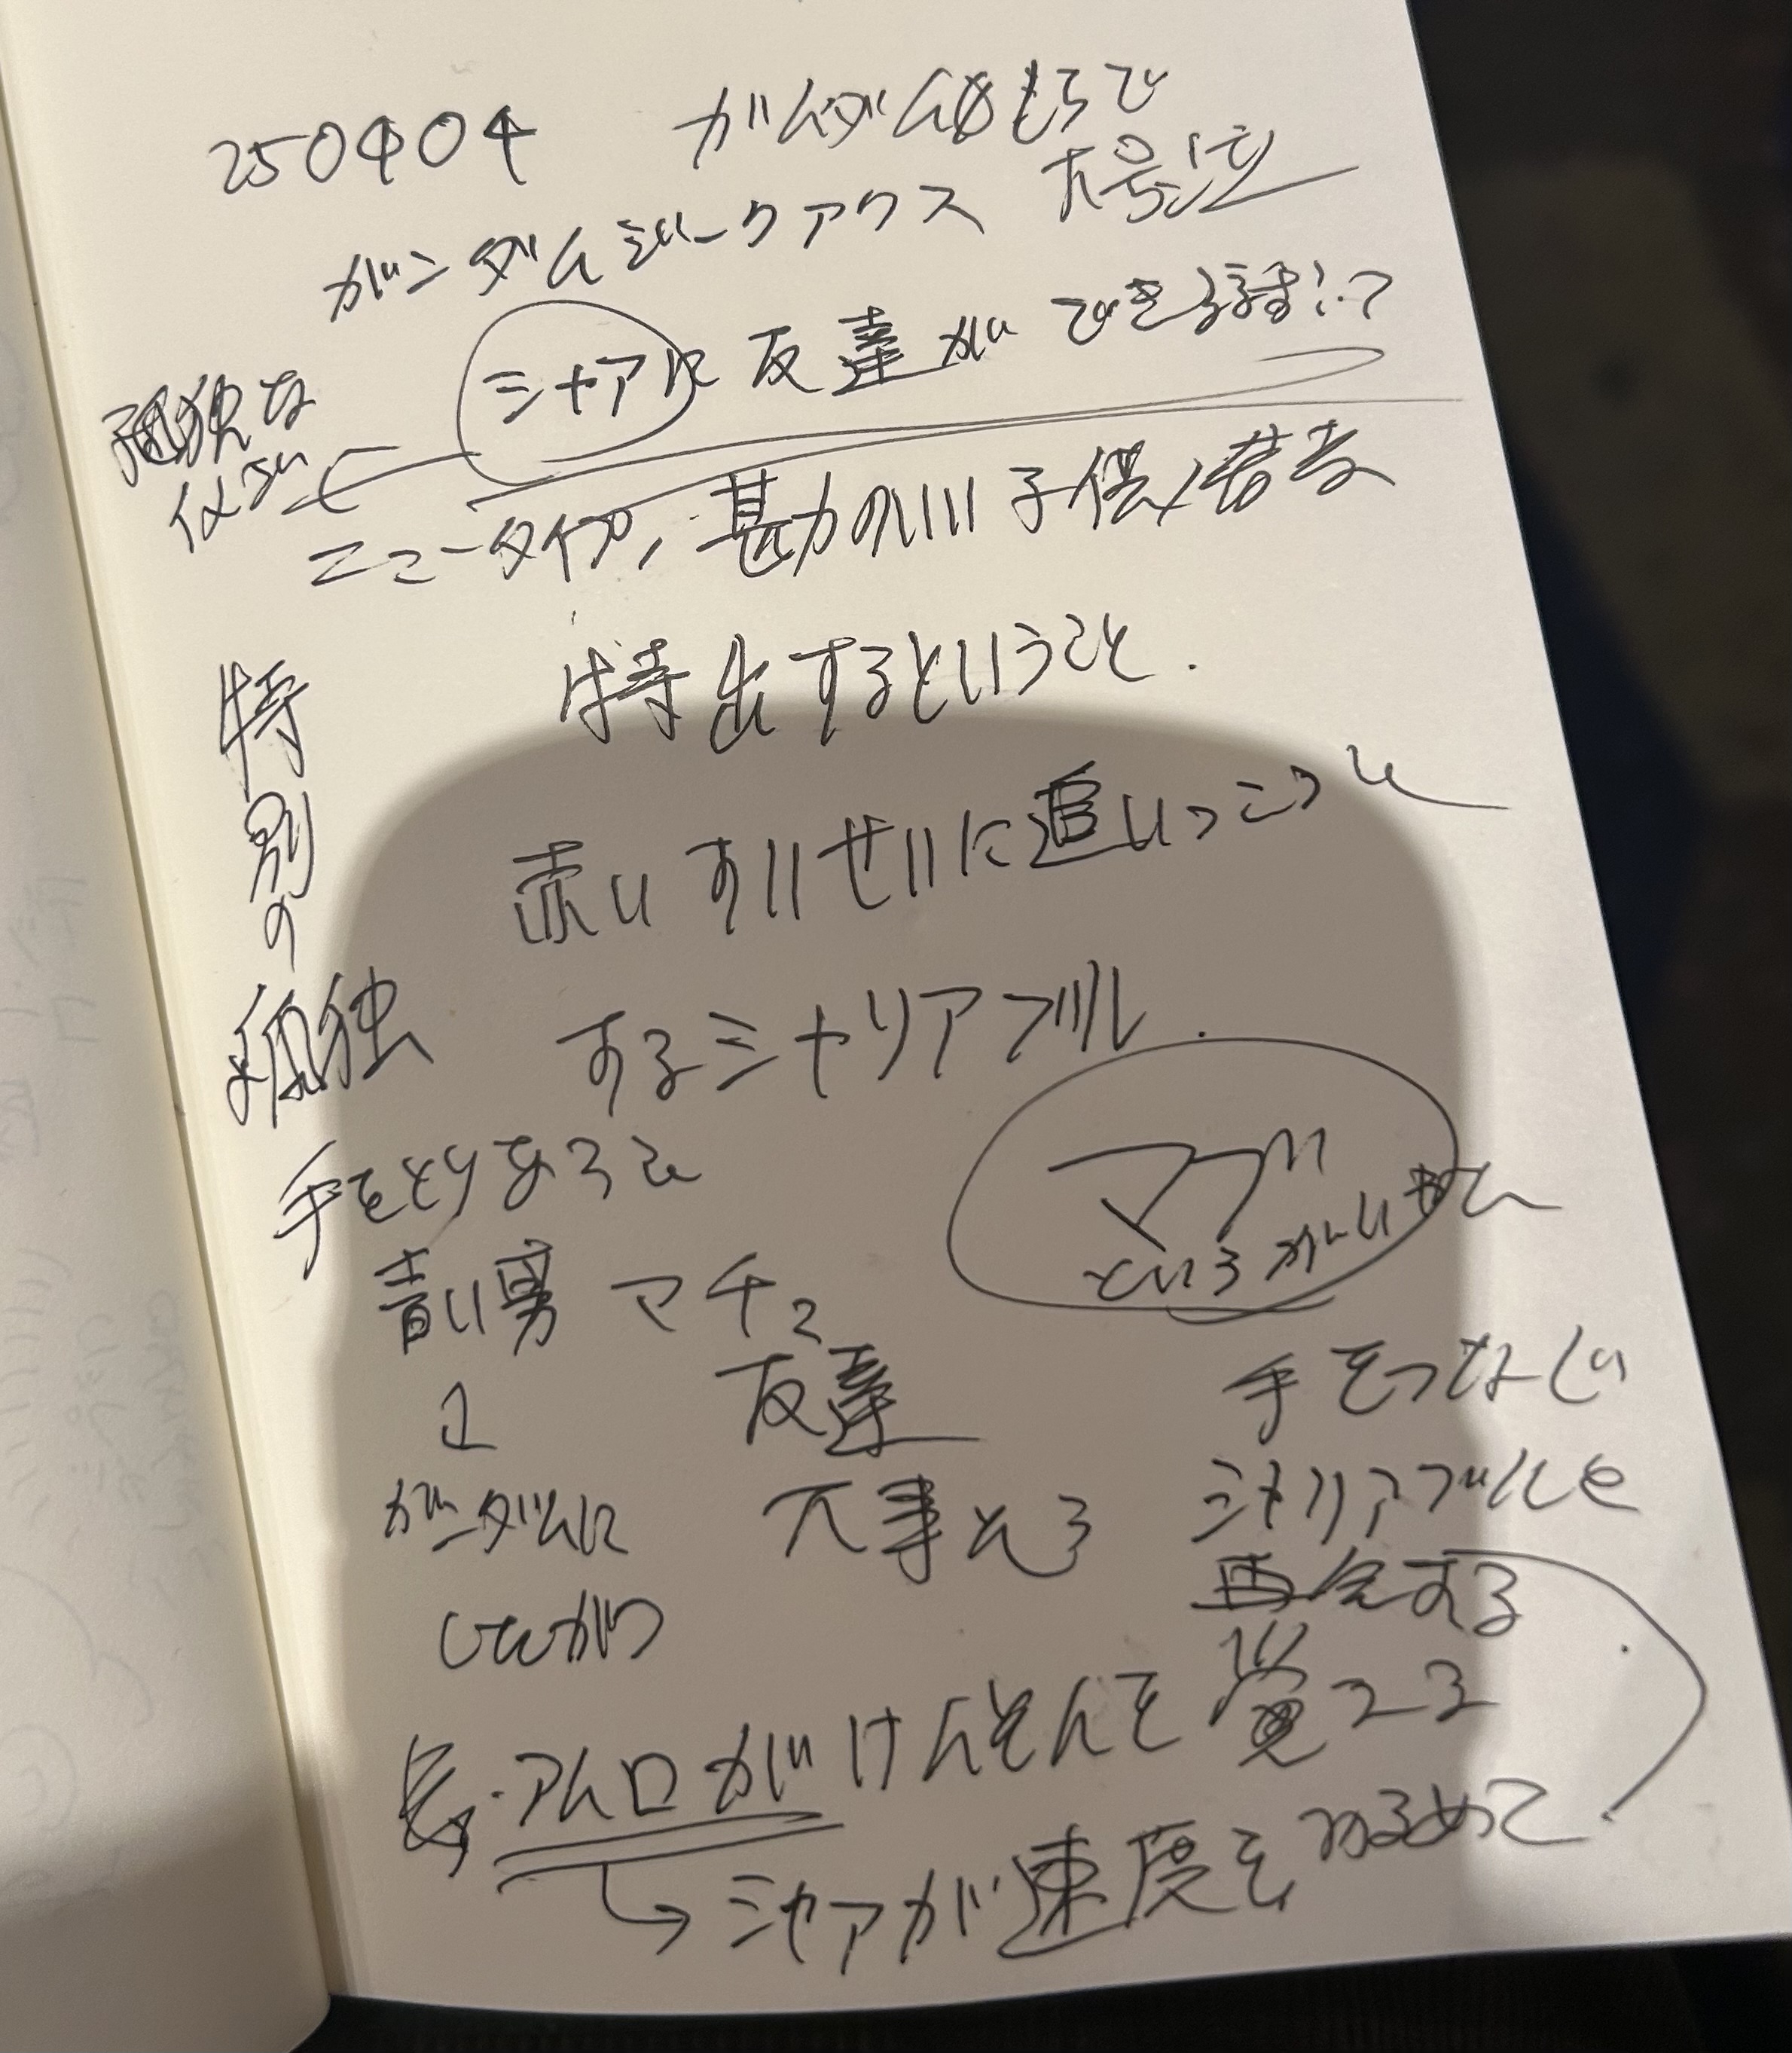 250404
ガンダムジークアクス 大号泣
シャアに友達ができる話…?
孤独な
ニュータイプ/甚力のいい子供/若者
特出するということ.
特別の
孤独
赤いすいせいに追いつこうと
するシャリアブル.
手をとりあって
マブ
青い男 マチュ
友達
手をつないで
ガンダムに
大事とる
シャリアブルと
再会する
アムロがけんそんを覚える
シャアが速度をゆるめて